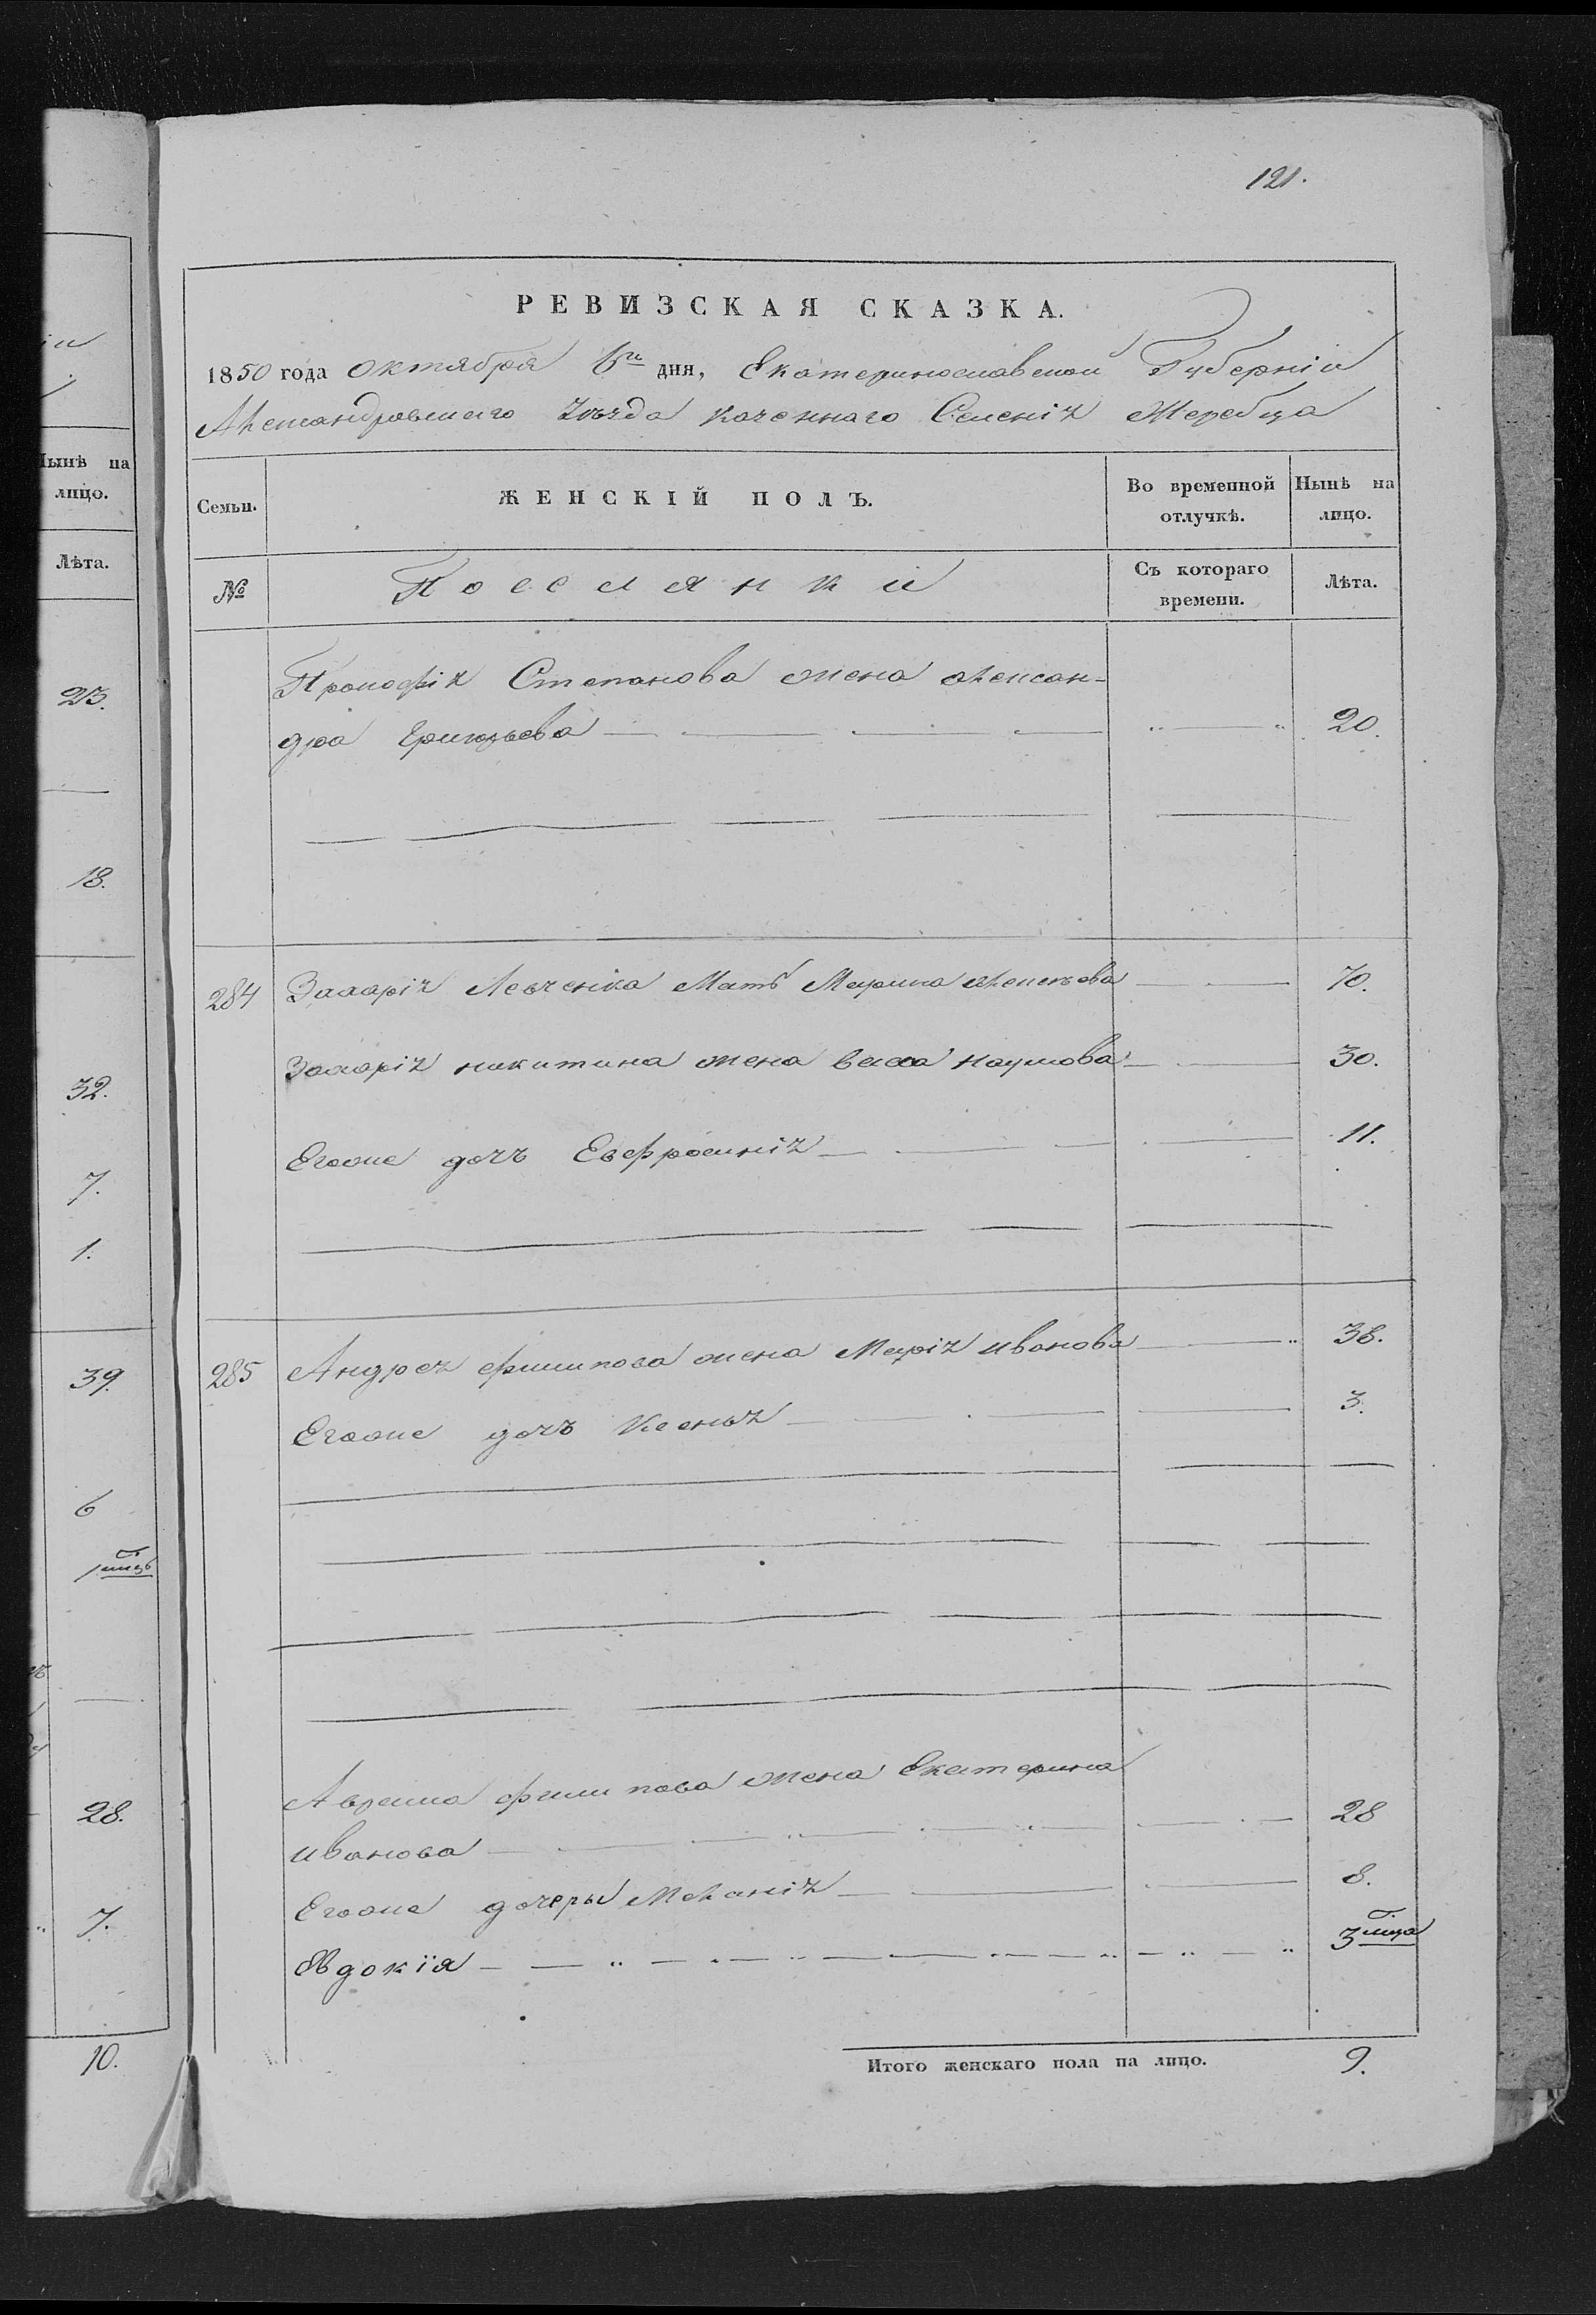 121.
РЕВИЗСКАЯ СКАЗКА.
1850 года октября 6го дня, Екатеринославской Губерніи
Александровскаго Уѣзда казеннаго Селенія Жеребца
Семьи. ЖЕНСКІЙ ПОЛЪ. Во временной отлучкѣ. Нынѣ на лицо.
№ Поселянки Съ котораго времени. Лѣта.
Прокофія Степанова жена Алексан-
дра Григорьева 20.
284 Захарія Левченка Мать Марина Алексѣева 70.
Захарія никитина жена васса наумова 30.
Егоже дочъ Евфросинія 11.
285 Андрея филипова жена Марія иванова 38.
Егоже дочъ Ксенья 3.
Аврама филипова жена Екатерина
иванова 28
Егоже дочеры Меланія 8.
Євдокія 3 мца
Итого женскаго пола на лицо. 9.
Нынѣ на
лицо.
Лѣта.
23.
18.
32.
7.
1.
39.
6
1 мцъ
28.
7.
10.